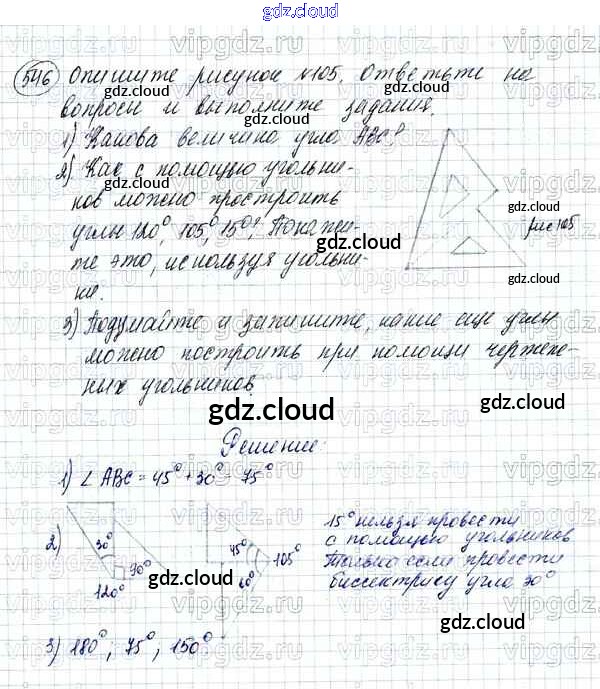 gdz.cloud
546 Опишите рисунок №105. Ответьте на
вопросы и выполните задания.
1) Какова величина угла ABC?
2) Как с помощью угольни-
ков можно простроить
углы 120°, 105°, 15°? Покажи-
те это, используя угольни-
ки.
рис 105
3) Подумайте и запишите, какие еще углы
можно построить при помощи чертеж-
ных угольников.
Решение:
1) ∠ ABC = 45° + 30° = 75°
2)
30°
90°
120°
45°
60°
105°
15° нельзя провести
с помощью угольников
Только если провести
биссектрису угла 30°
3) 180°; 75°, 150°.
gdz.cloud
vipgdz.cloud